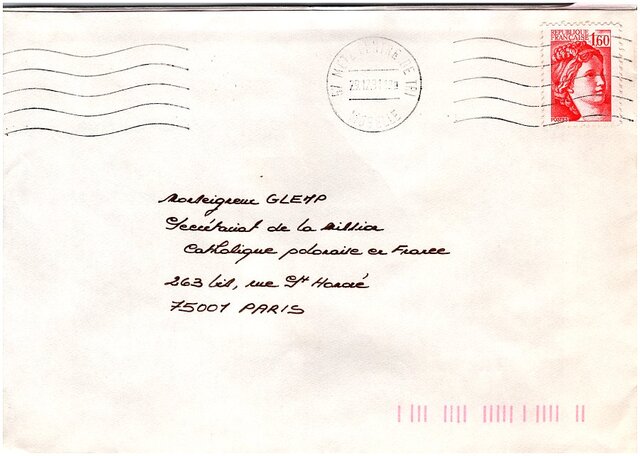 REPUBLIQUE
FRANCAISE
1,60
57 METZ CENTRE DE TRI
MOSELLE
Monseigneur GLEMP
Secrétariat de la Mission
Catholique polonaise en France
263 bis, rue St Honoré
75001 PARIS